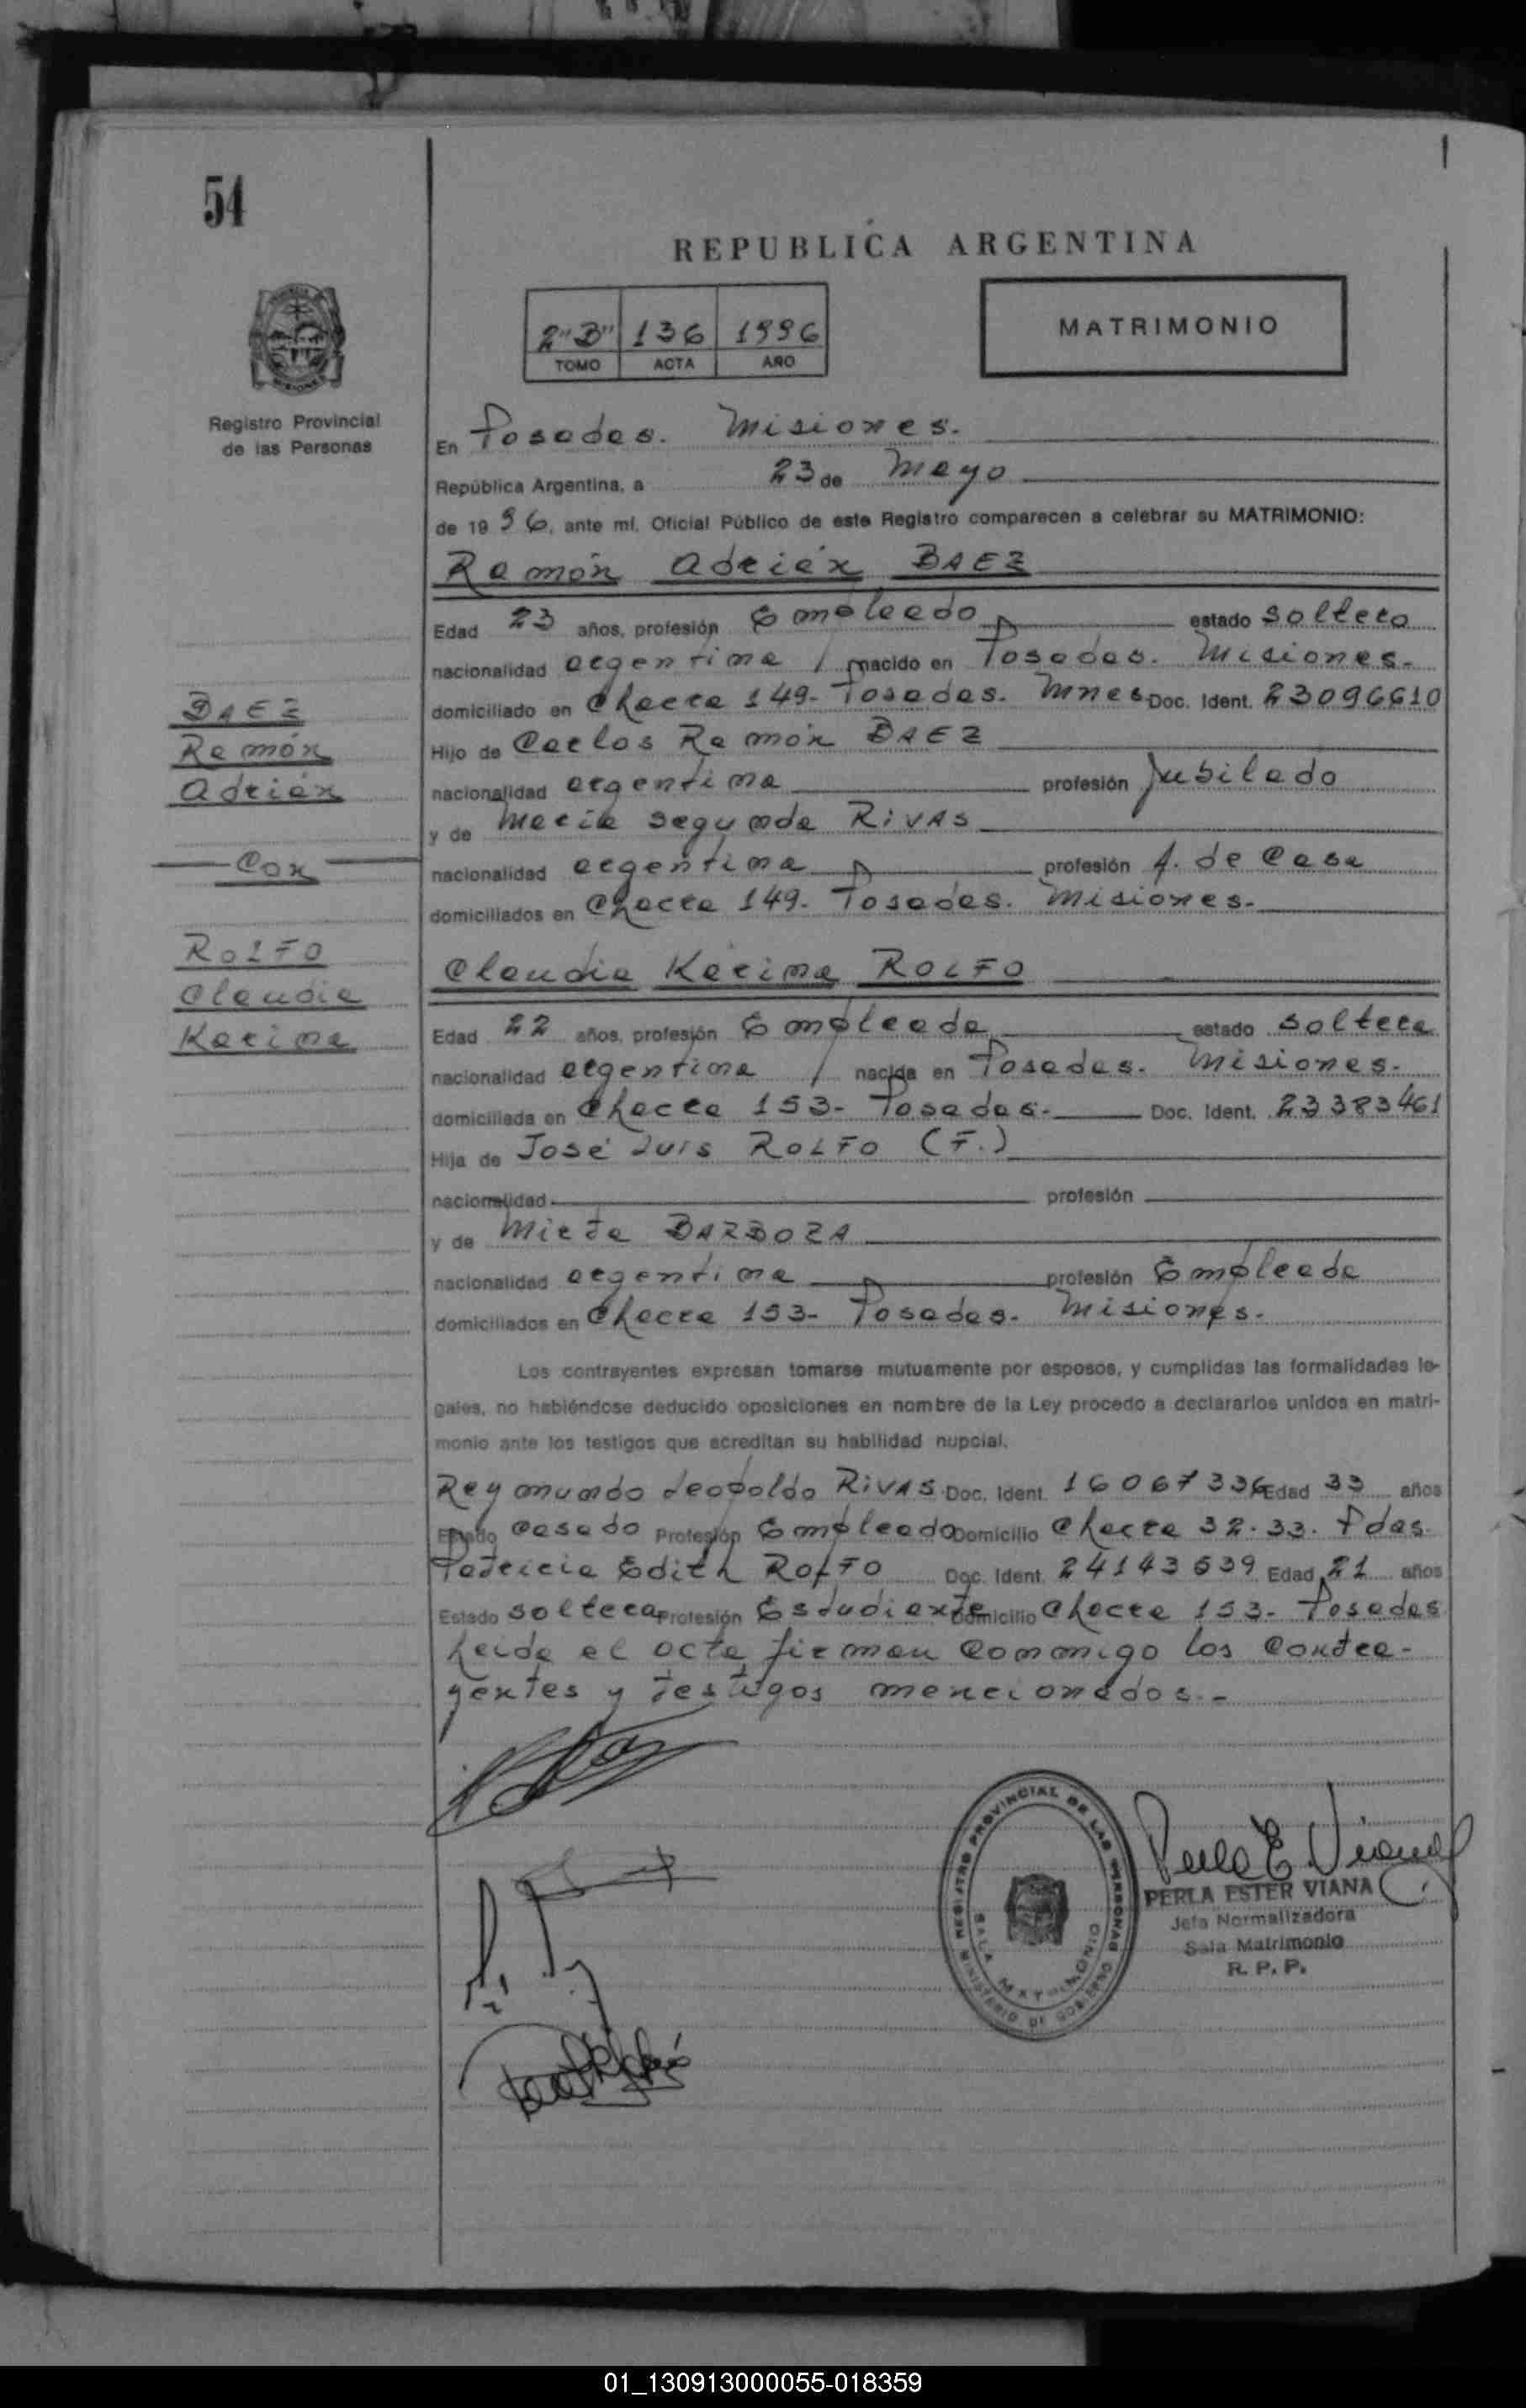 54
REPUBLICA ARGENTINA
2"B" 136 1996
TOMO ACTA AÑO
MATRIMONIO
Registro Provincial
de las Personas
En Posadas. Misiones.
República Argentina, a 23 de Mayo
de 1996, ante mí, Oficial Público de este Registro comparecen a celebrar su MATRIMONIO:
Ramón Adrián BAEZ
Edad 23 años, profesión Empleado estado soltero
nacionalidad argentina nacido en Posadas. Misiones.
domiciliado en Chacra 149. Posadas. Mnes Doc. Ident. 23096610
Hijo de Carlos Ramón BAEZ
nacionalidad argentina profesión Jubilado
y de María Segunda RIVAS
nacionalidad argentina profesión A. de Casa
domiciliados en Chacra 149. Posadas. Misiones.
BAEZ
Ramón
Adrián
Con
ROLFO
Claudia
Karina
Claudia Karina ROLFO
Edad 22 años, profesión Empleada estado soltera
nacionalidad argentina nacida en Posadas. Misiones.
domiciliada en Chacra 153- Posadas. Doc. Ident. 23383461
Hija de José Luis ROLFO (F.)
nacionalidad profesión
y de Mirta BARBOZA
nacionalidad argentina profesión Empleada
domiciliados en Chacra 153- Posadas. Misiones.
Los contrayentes expresan tomarse mutuamente por esposos, y cumplidas las formalidades le-
gales, no habiéndose deducido oposiciones en nombre de la Ley procedo a declararlos unidos en matri-
monio ante los testigos que acreditan su habilidad nupcial.
Raymundo Leopoldo RIVAS. Doc. Ident. 16067336 Edad 33 años
Estado Casado Profesión Empleado Domicilio Chacra 32-33. Pdas.
Patricia Edith ROLFO Doc. Ident. 24143639 Edad 21 años
Estado soltera Profesión Estudiante Domicilio Chacra 153- Posadas
Leida el acta firman conmigo los contra-
yentes y testigos mencionados.-
REGISTRO PROVINCIAL DE LAS PERSONAS
SALA MATRIMONIO
MINISTERIO DE GOBIERNO
Perla E Viana
PERLA ESTER VIANA
Jefa Normalizadora
Sala Matrimonio
R. P. P.
01_130913000055-018359